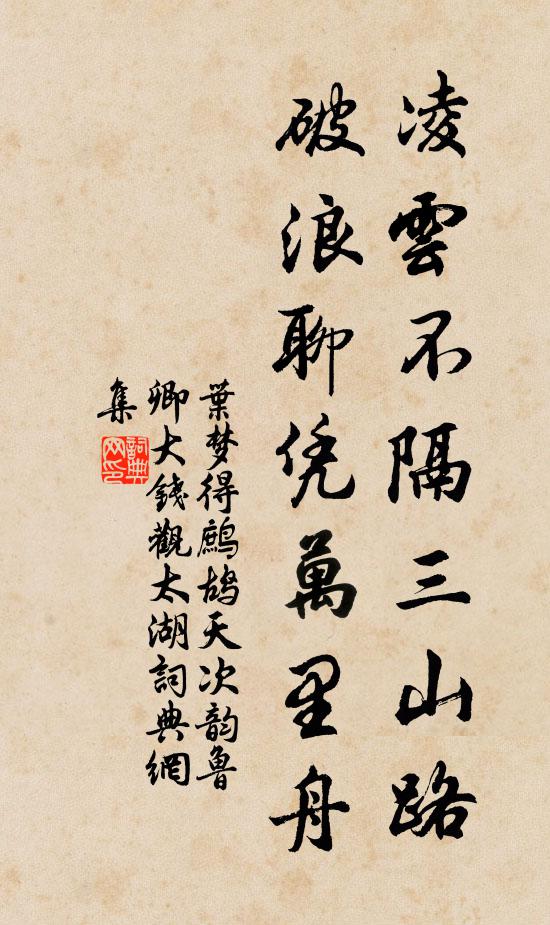 凌雲不隔三山路
破浪聊凭萬里舟
葉梦得鷓鴣天次韵魯
卿大錢觀太湖詞典網
集
詞典
网印